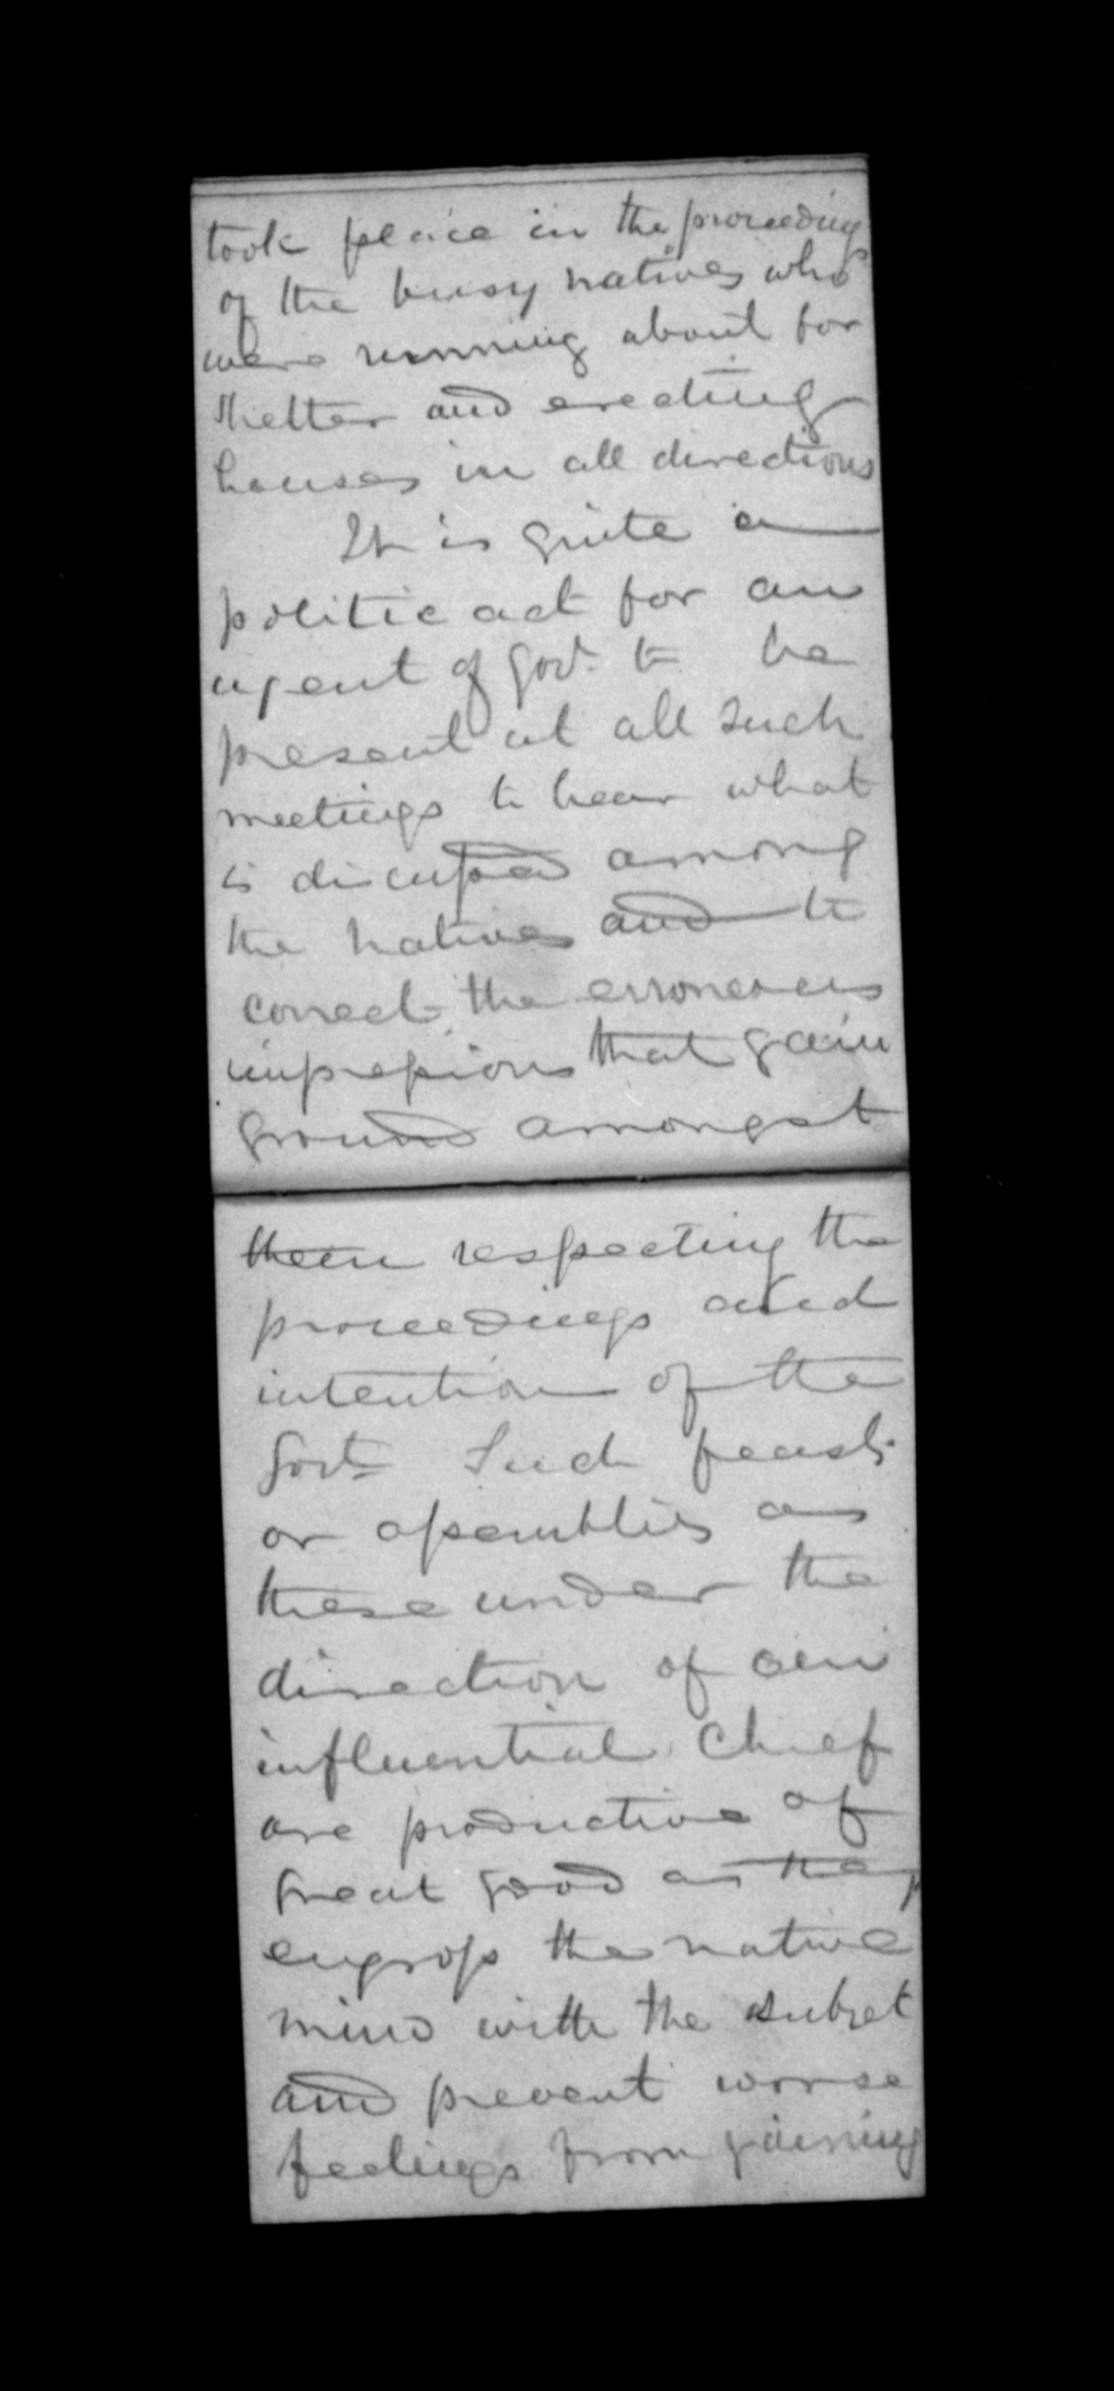 took place in the proceedings
of the busy natives who
were running about for
shelter and erecting
houses in all directions
It is quite a
politic act for an
agent of Govt. to be
present at all such
meetings to hear what
is discussed among
the natives and to
correct the erroneous
impressions that gain
ground amongst
them respecting the
proceedings and
intention of the
Govt Such feasts
or assemblies as
these under the
direction of an
influential Chief
are productive of
great good as they
engross the native
mind with the subject
and prevent worse
feelings from gaining